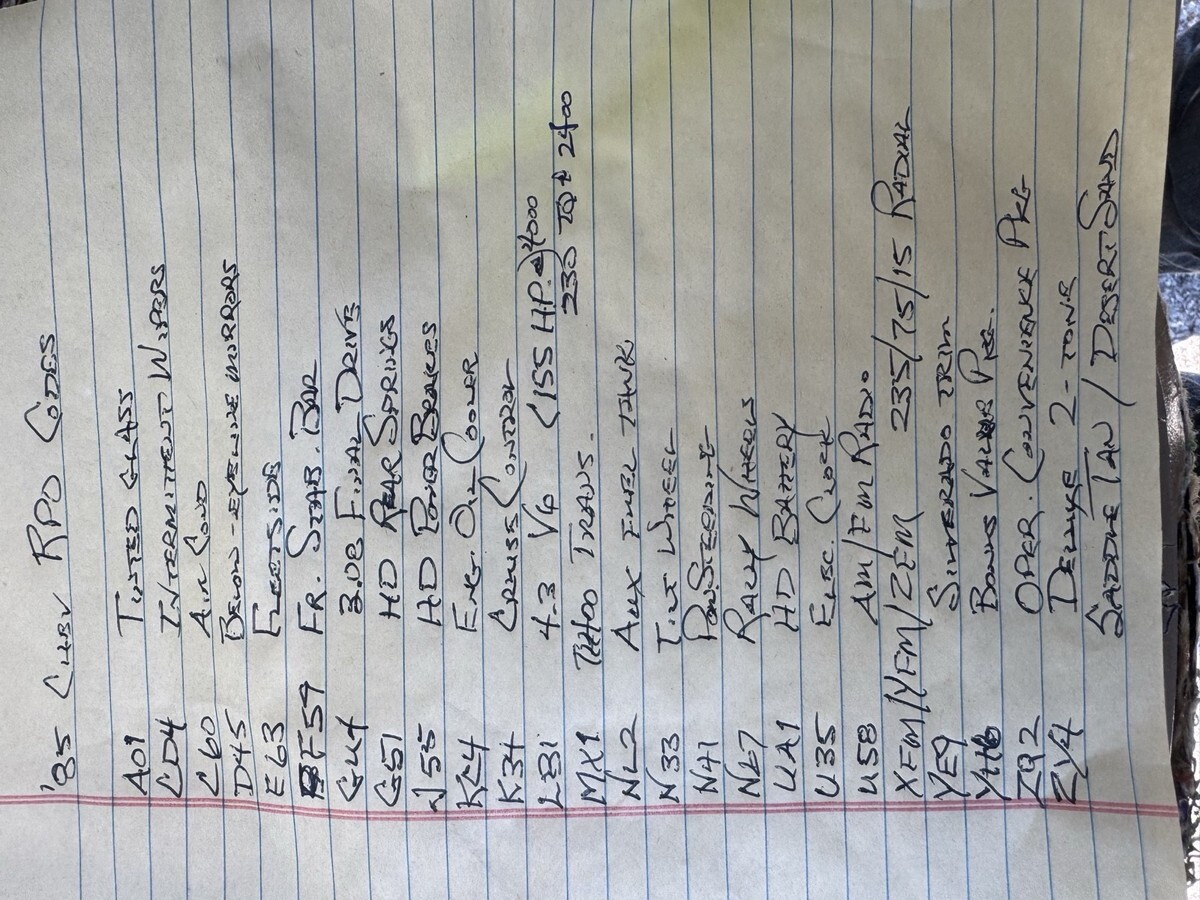 '85 CHEV RPO CODES
A01 TINTED GLASS
CD4 INTERMITTENT WIPERS
C60 AIR COND
D45 BELOW-EYELINE MIRRORS
E63 FLEETSIDE
F59 FR. STAB. BAR
GU4 3.08 FINAL DRIVE
G51 HD REAR SPRINGS
J55 HD POWER BRAKES
KC4 ENG. OIL COOLER
K34 CRUISE CONTROL
LB1 4.3 V6 (155 H.P. @ 4000
230 TQ @ 2400
MX1 TH400 TRANS.
NL2 AUX FUEL TANK
N33 TILT WHEEL
N41 POW. STEERING
N67 RALLY WHEELS
UA1 HD BATTERY
U35 ELEC. CLOCK
U58 AM/FM RADIO
XEM/YEM/ZEM 235/75/15 RADIAL
YE9 SILVERADO TRIM
BONUS VALUE PKG.
ZQ2 OPER. CONVENIENCE PKG
ZY4 DELUXE 2-TONE
SADDLE TAN / DESERT SAND